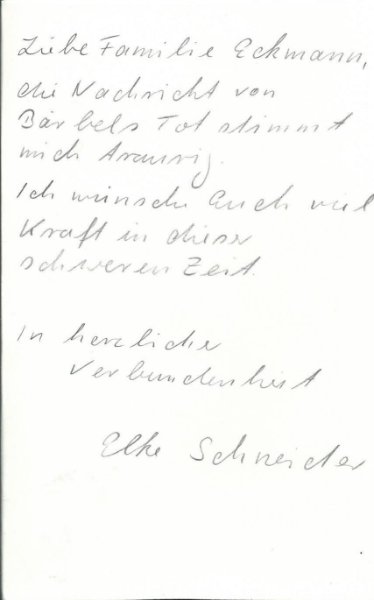 Liebe Familie Eckmann,
die Nachricht von
Bärbels Tot stimmt
mich traurig.
Ich wünsche Euch viel
Kraft in dieser
schweren Zeit.
In herzlicher
Verbundenheit
Elke Schneider